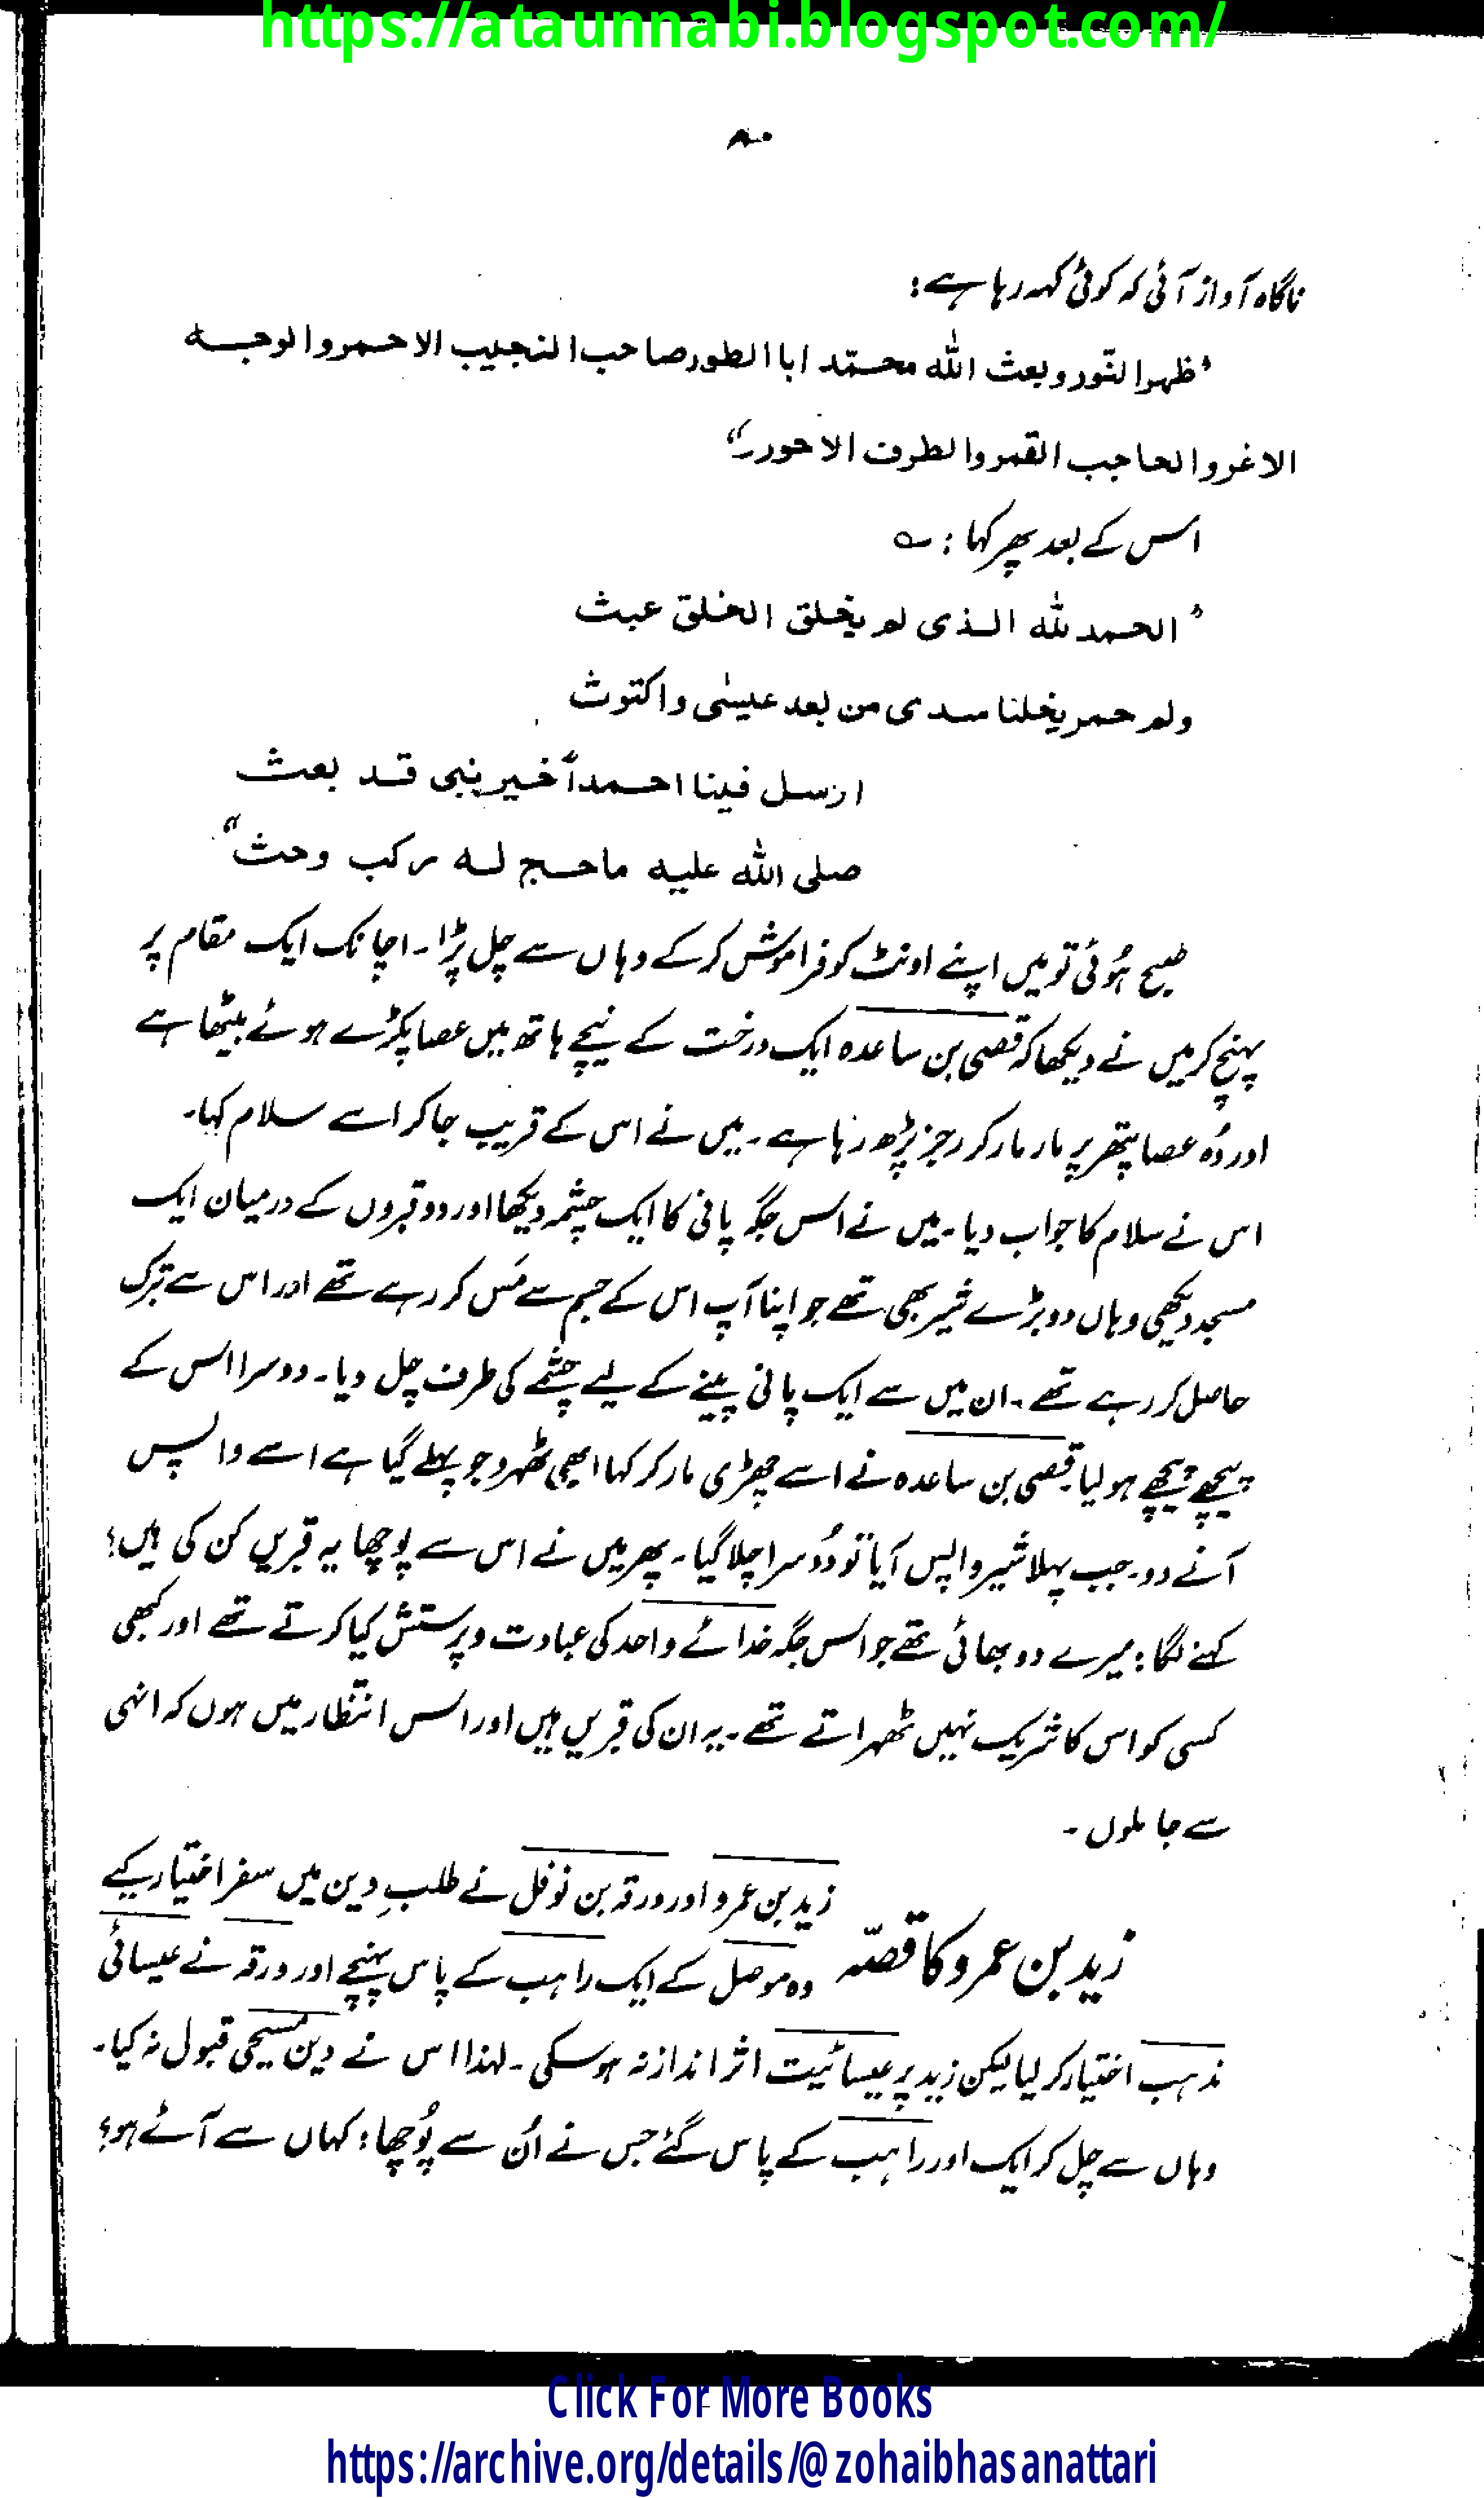 https://ataunnabi.blogspot.com/
۸۰
ناگاہ آواز آئی کہ کوئی کہہ رہا ہے :
"ظہر النّور وبعث اللّٰہ محمّد ابا الطور صاحب النجیب الاحمر والوجہ
الاغر والحاجب القمر والطرف الاحور"
اس کے بعد پھر کہا : ؎
"الحمد للّٰہ الذی لم یخلق الخلق عبث
ولم حمر یخلنا سدی من بعد عیسٰی واکتوث
ارسل فینا احمداً خیر نبی قد بعث
صلی اللّٰہ علیہ ماحج لہ رکب وحث"
صبح ہُوئی تو میں اپنے اونٹ کو فراموش کر کے وہاں سے چل پڑا۔ اچانک ایک مقام پر
پہنچ کر میں نے دیکھا کہ قصی بن ساعدہ ایک درخت کے نیچے ہاتھ میں عصا پکڑے ہوئے بیٹھا ہے
اور وُہ عصا پتھر پر مار مار کر رجز پڑھ رہا ہے۔ میں نے اس کے قریب جا کر اسے سلام کہا۔
اس نے سلام کا جواب دیا۔ میں نے اس جگہ پانی کا ایک چشمہ دیکھا اور دو قبروں کے درمیان ایک
مسجد دیکھی وہاں دو بڑے شیر بھی تھے جو اپنا آپ اس کے جسم سے مَس کر رہے تھے اور اس سے تبرک
حاصل کر رہے تھے۔ ان میں سے ایک پانی پینے کے لیے چشمے کی طرف چل دیا۔ دوسرا اس کے
پیچھے پیچھے ہو لیا۔ قصی بن ساعدہ نے اسے چھڑی مار کر کہا ابھی ٹھہرو جو پہلے گیا ہے اسے واپس
آنے دو۔ جب پہلا شیر واپس آیا تو دُوسرا چلا گیا۔ پھر میں نے اس سے پوچھا یہ قبریں کن کی ہیں؟
کہنے لگا : میرے دو بھائی تھے جو اس جگہ خدائے واحد کی عبادت و پرستش کیا کرتے تھے اور کبھی
کسی کو اس کا شریک نہیں ٹھہراتے تھے۔ یہ ان کی قبریں ہیں اور اس انتظار میں ہوں کہ انہی
سے جا ملوں۔
زید بن عمرو کا قصّہ
زید بن عمرو اور ورقہ بن نوفل نے طلبِ دین میں سفر اختیار کیے
وہ موصل کے ایک راہب کے پاس پہنچے اور ورقہ نے عیسائی
مذہب اختیار کر لیا لیکن زید پر عیسائیت اثر انداز نہ ہو سکی۔ لہذا اس نے دین مسیحی قبول نہ کیا۔
وہاں سے چل کر ایک اور راہب کے پاس گئے جس نے اُن سے پُوچھا : کہاں سے آئے ہو؟
Click For More Books
https://archive.org/details/@zohaibhasanattari